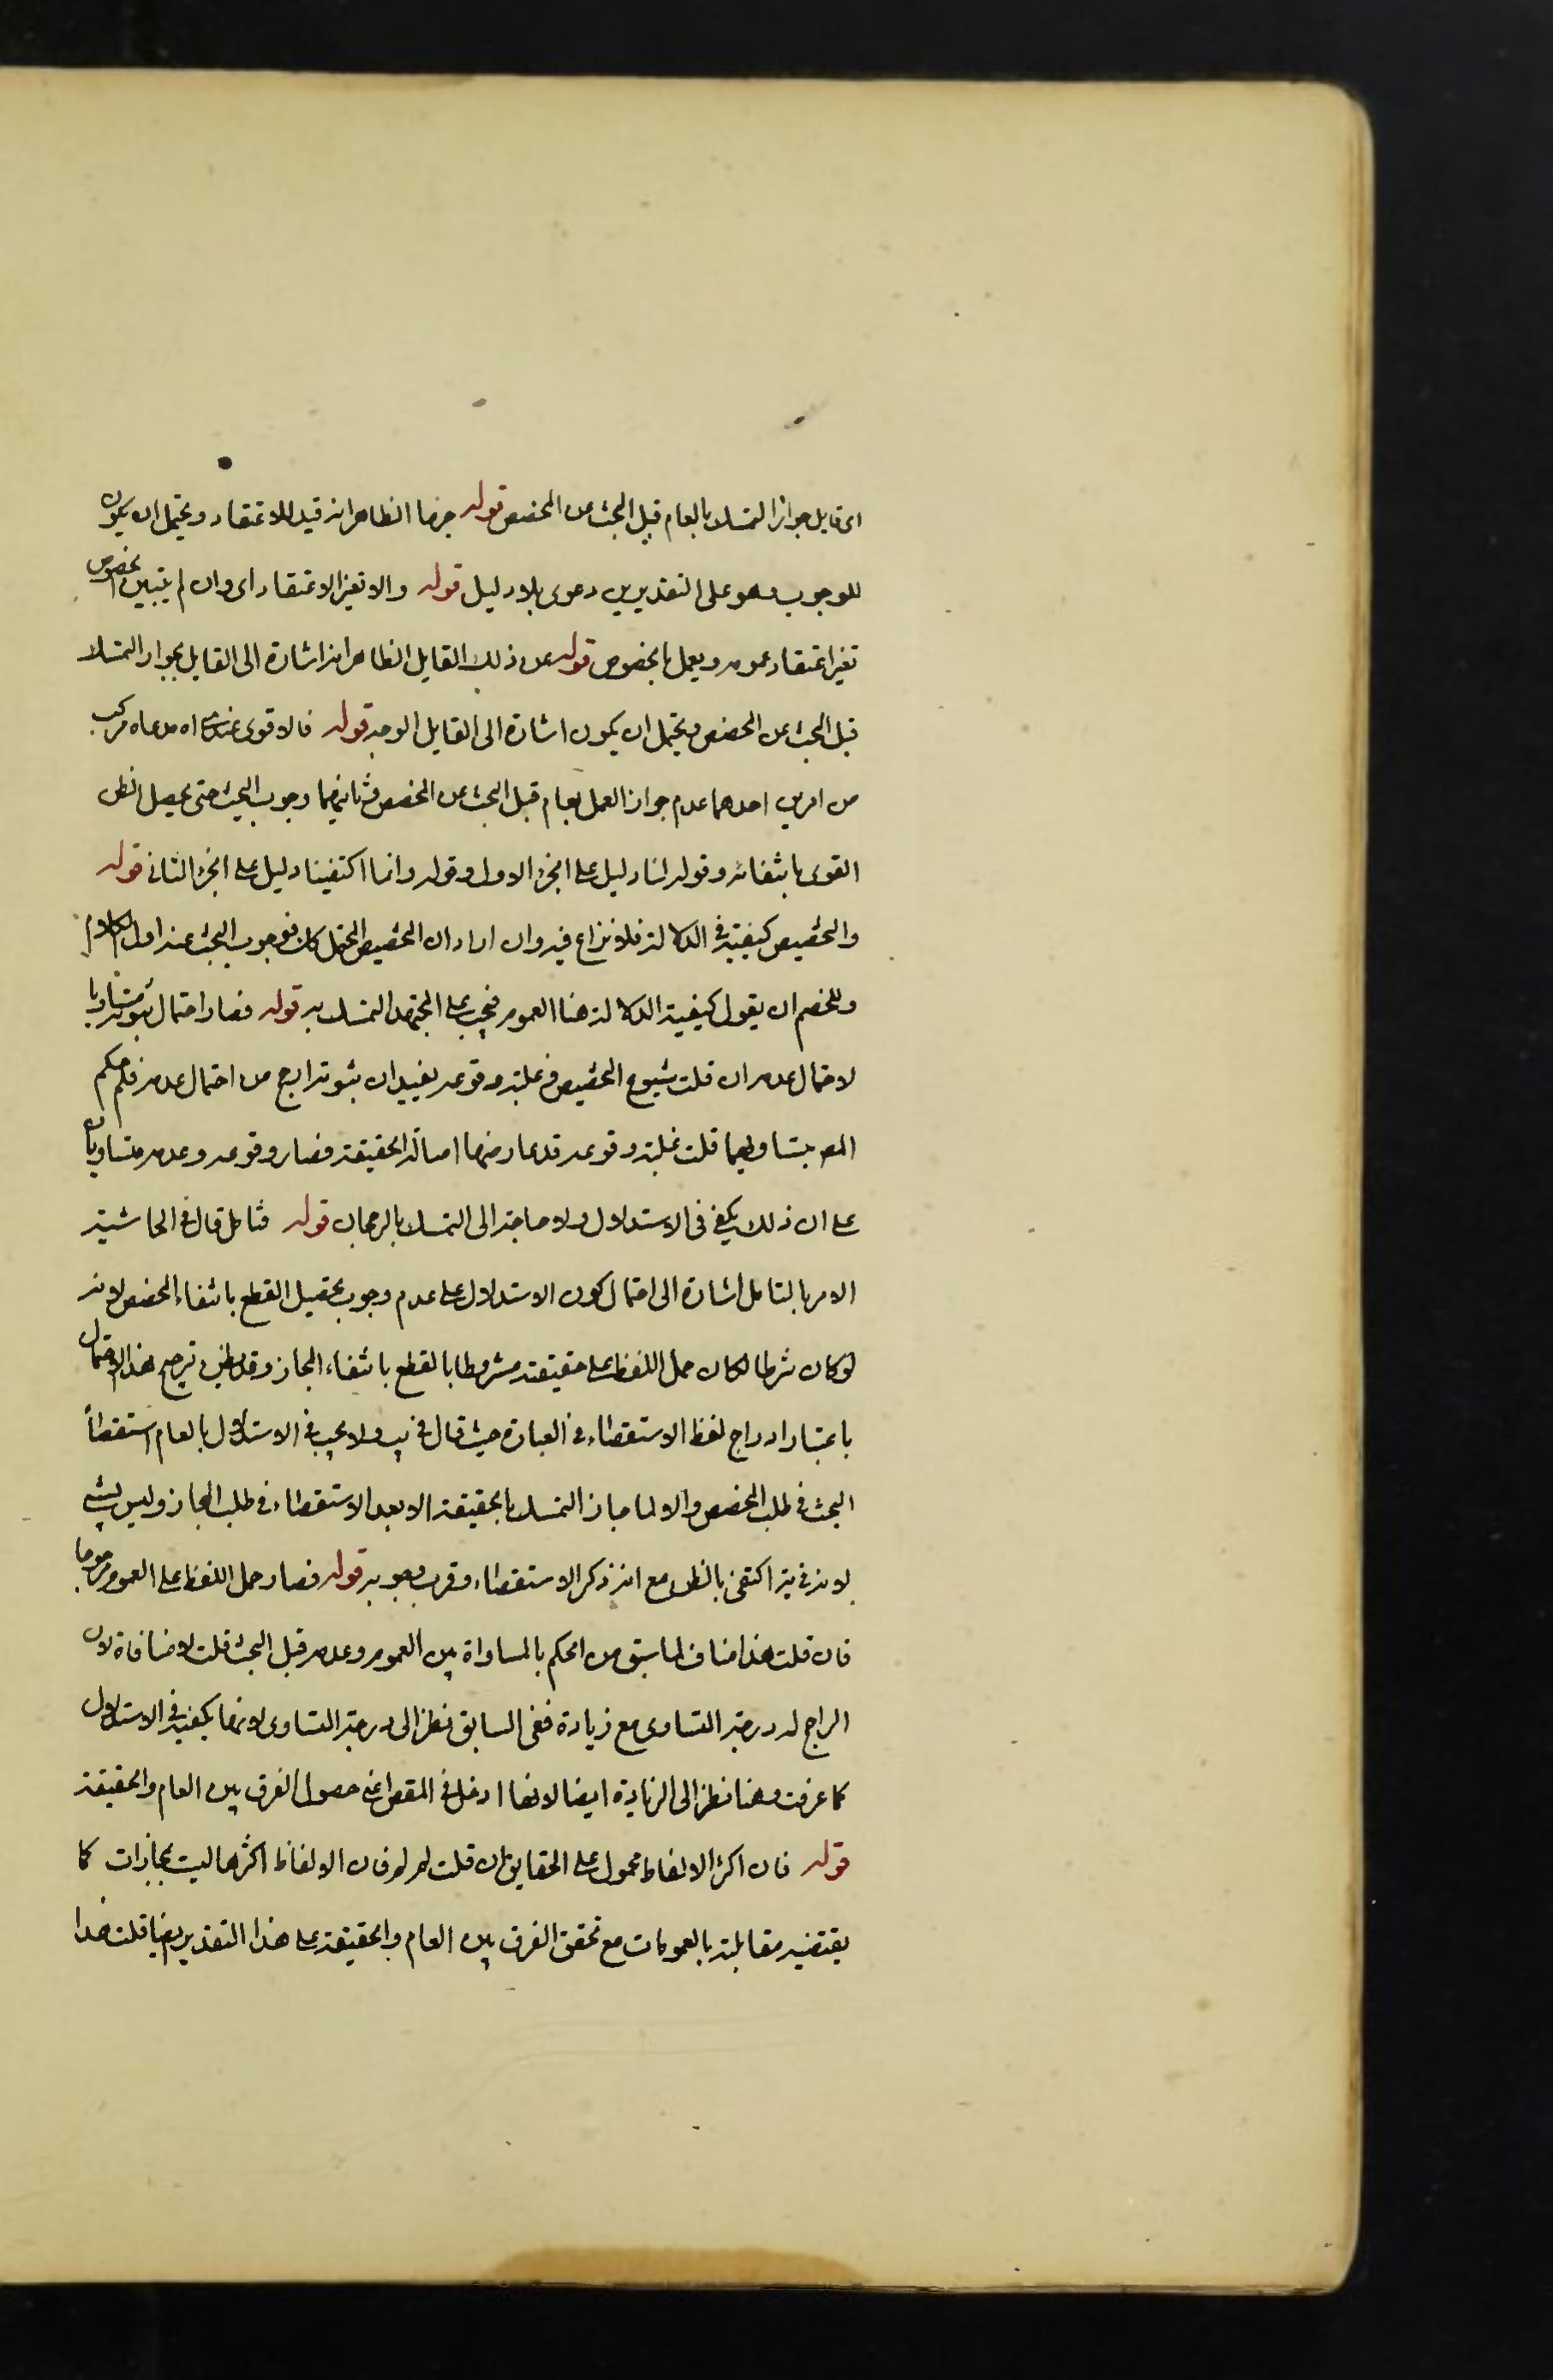 اى قايل بجواز التمسك بالعام قبل البحث عن المخصص قوله جزما الظاهر انه قيد للاعتقاد ويحتمل ان يكون
للوجوب وهو على التقديرين دعوى بلا دليل قوله والا تغير الاعتقاد اى وان لم يتبين الخصوص
تغير اعتقاد عمومه ويعمل بالخصوص قوله عن ذلك القايل الظاهر انه اشارة الى القايل بجواز التمسك
قبل البحث عن المخصص ويحتمل ان يكون اشارة الى القايل الوجه قوله فالاقوى عندى اه مدعاه مركب
من امرين احدهما عدم جواز العمل بعام قبل البحث عن المخصص وثانيهما وجوب البحث حتى يحصل الظن
القوى بانتفائه وقوله لنا دليل على الجزء الاول وقوله وانما اكتفينا دليل على الجزء الثانى قوله
والتخصيص كيفيته فى الدلالة فلا نزاع فيه وان اراد ان التخصيص المحتمل كان فوجوب البحث عنه اول الكلام
وللخصم ان يقول كيفية الدلالة هنا العموم فيجب على المجتهد التمسك به قوله فصار احتمال ثبوته مساويا
لاحتمال عدمه ان قلت شيوع التخصيص وغلبة وقوعه يفيد ان ثبوته ارجح من احتمال عدمه فلم حكم
المص بتساويهما قلت غلبة وقوعه قد عارضها اصالة الحقيقة فصار وقوعه وعدمه متساويان
على ان ذلك يكفى فى الاستدلال ولا حاجة الى التمسك بالرجحان قوله فتامل قال فى الحاشية
الامر بالتامل اشارة الى احتمال كون الاستدلال على عدم وجوب تحصيل القطع بانتفاء المخصص لانه
لو كان شرطا لكان حمل اللفظ على حقيقته مشروطا بالقطع بانتفاء المجاز وقد يظن ترجيح هذا الاحتمال
باعتبار ادراج لفظ الاستقصاء فى العبارة حيث قال فى يب ولا يجب فى الاستدلال بالعام استقصاء
البحث فى طلب المخصص والا لما جاز التمسك بالحقيقة الا بعد الاستقصاء فى طلب المجاز وليس بشىء
لانه فى ية اكتفى بالظن مع انه ذكر الاستقصاء وقرب وجوبه قوله فصار حمل اللفظ على العموم مرجوحا
فان قلت هذا مناف لما سبق من الحكم بالمساواة بين العموم وعدمه قبل البحث قلت لا منافاة لان
الراجح له درجة التساوى مع زيادة ففى السابق نظر الى درجة التساوى لانها يكفيه فى الاستدلال
كما عرفت وهنا نظر الى الزيادة ايضا لانها ادخل فى المقص اعنى حصول الفرق بين العام والحقيقة
قوله فان اكثر الالفاظ محمول على الحقايق ان قلت لم لم فان الالفاظ اكثرها ليست بمجازات كما
يقتضيه مقابلته بالعمومات مع تحقق الفرق بين العام والحقيقة على هذا التقدير ايضا قلت هذا